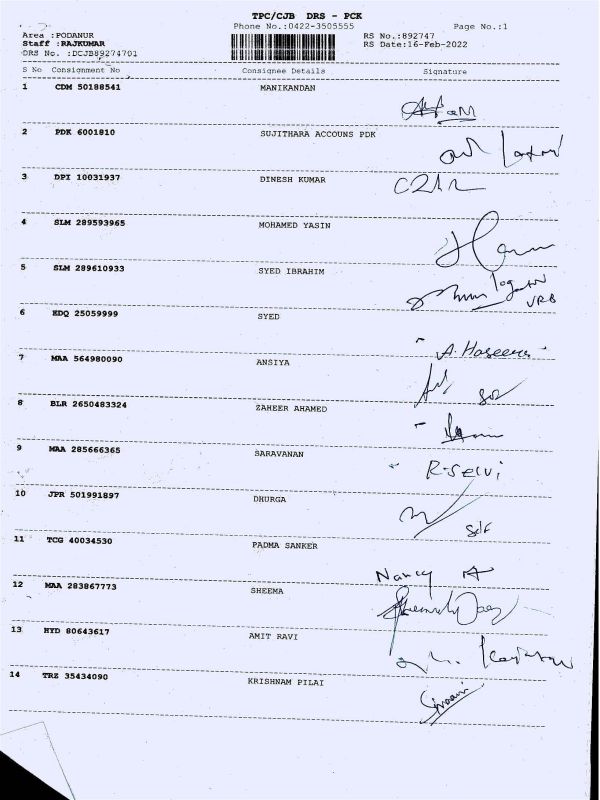 TPC/CJB DRS - PCK
Phone No.:0422-3505555 Page No.:1
Area :PODANUR RS No.:892747
Staff :RAJKUMAR RS Date:16-Feb-2022
DRS No. :DCJB89274701
S No Consignment No Consignee Details Signature
1 CDM 50188541 MANIKANDAN
2 PDK 6001810 SUJITHARA ACCOUNS PDK
3 DPI 10031937 DINESH KUMAR
4 SLM 289593965 MOHAMED YASIN
5 SLM 289610933 SYED IBRAHIM
6 KDQ 25059999 SYED
A. Haseena
7 MAA 564980090 ANSIYA
8 BLR 2650483324 ZAHEER AHAMED
9 MAA 285666365 SARAVANAN
R. Selvi
10 JPR 501991897 DHURGA
11 TCG 40034530 PADMA SANKER
Nancy A
12 MAA 283867773 SHEEMA
13 HYD 80643617 AMIT RAVI
14 TRZ 35434090 KRISHNAM PILAI